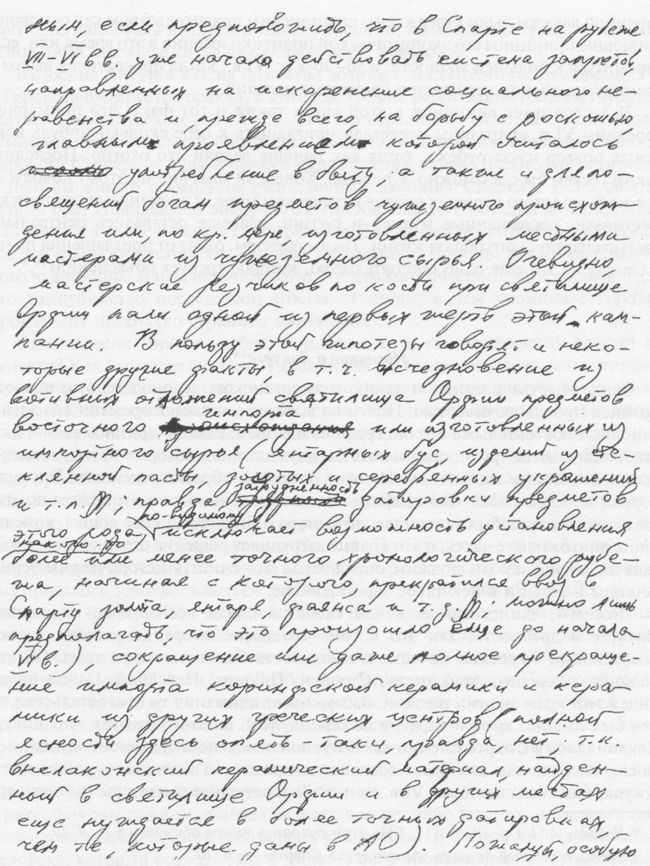 ным, если предположить, что в Спарте на рубеже
VII-VI вв. уже начала действовать система запретов,
направленных на искоренение социального не-
равенства и прежде всего на борьбу с роскошью
главным проявлением которой считалось
употребление в быту, а также и для по-
священий богам предметов чужеземного происхож-
дения или по кр. мере изготовленных местными
мастерами из чужеземного сырья. Очевидно,
мастерские резчиков по кости при святилище
Орфии пали одной из первых жертв этой кам-
пании. В пользу этой гипотезы говорят и неко-
торые другие факты в т.ч. исчезновение из
вотивных отложений святилища Орфии предметов
импорта
восточного происхождения или изготовленных из
импортного сырья (янтарных бус, изделий из сте-
клянной пасты, золотых и серебряных украшений
затруднённость
и т.п., правда датировки предметов
по-видимому
этого рода исключает возможность установления
какого-то
более или менее точного хронологического рубе-
жа, начиная с которого прекратился ввоз в
Спарту золота, янтаря, фаянса и т.д., можно лишь
предполагать, что это произошло еще до начала
VI в.), сокращение или даже полное прекраще-
ние импорта коринфской керамики и кера-
мики из других греческих центров (полной
ясности здесь опять-таки, правда нет, т.к.
внелаконский керамический материал, найден-
ный в святилище Орфии и в других местах
еще нуждается в более точных датировках
чем те которые даны в АО). Пожалуй, особую